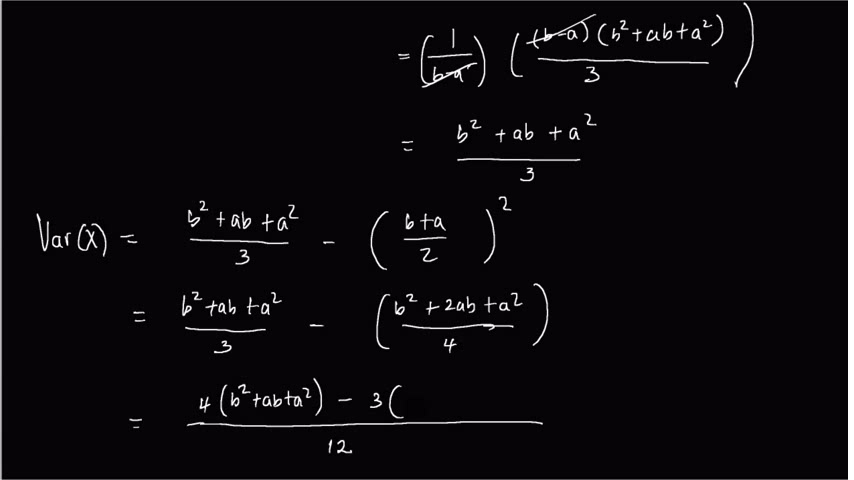 = (1/(b-a)) ((b-a)(b²+ab+a²)/3)
= (b²+ab+a²)/3
Var(X) = (b²+ab+a²)/3 - ((b+a)/2)²
= (b²+ab+a²)/3 - ((b²+2ab+a²)/4)
= (4(b²+ab+a²) - 3( )/12